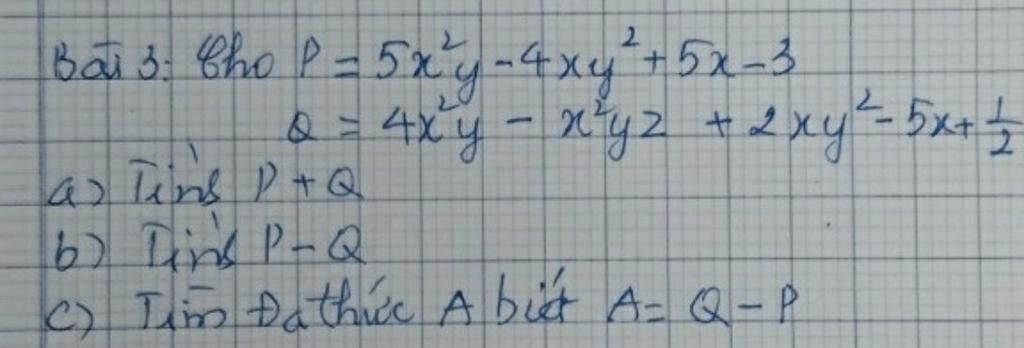 Bài 3: Cho P = 5x²y - 4xy² + 5x - 3
Q = 4x²y - x²yz + 2xy² - 5x + 1/2
a) Tính P + Q
b) Tính P - Q
c) Tìm Đa thức A biết A = Q - P